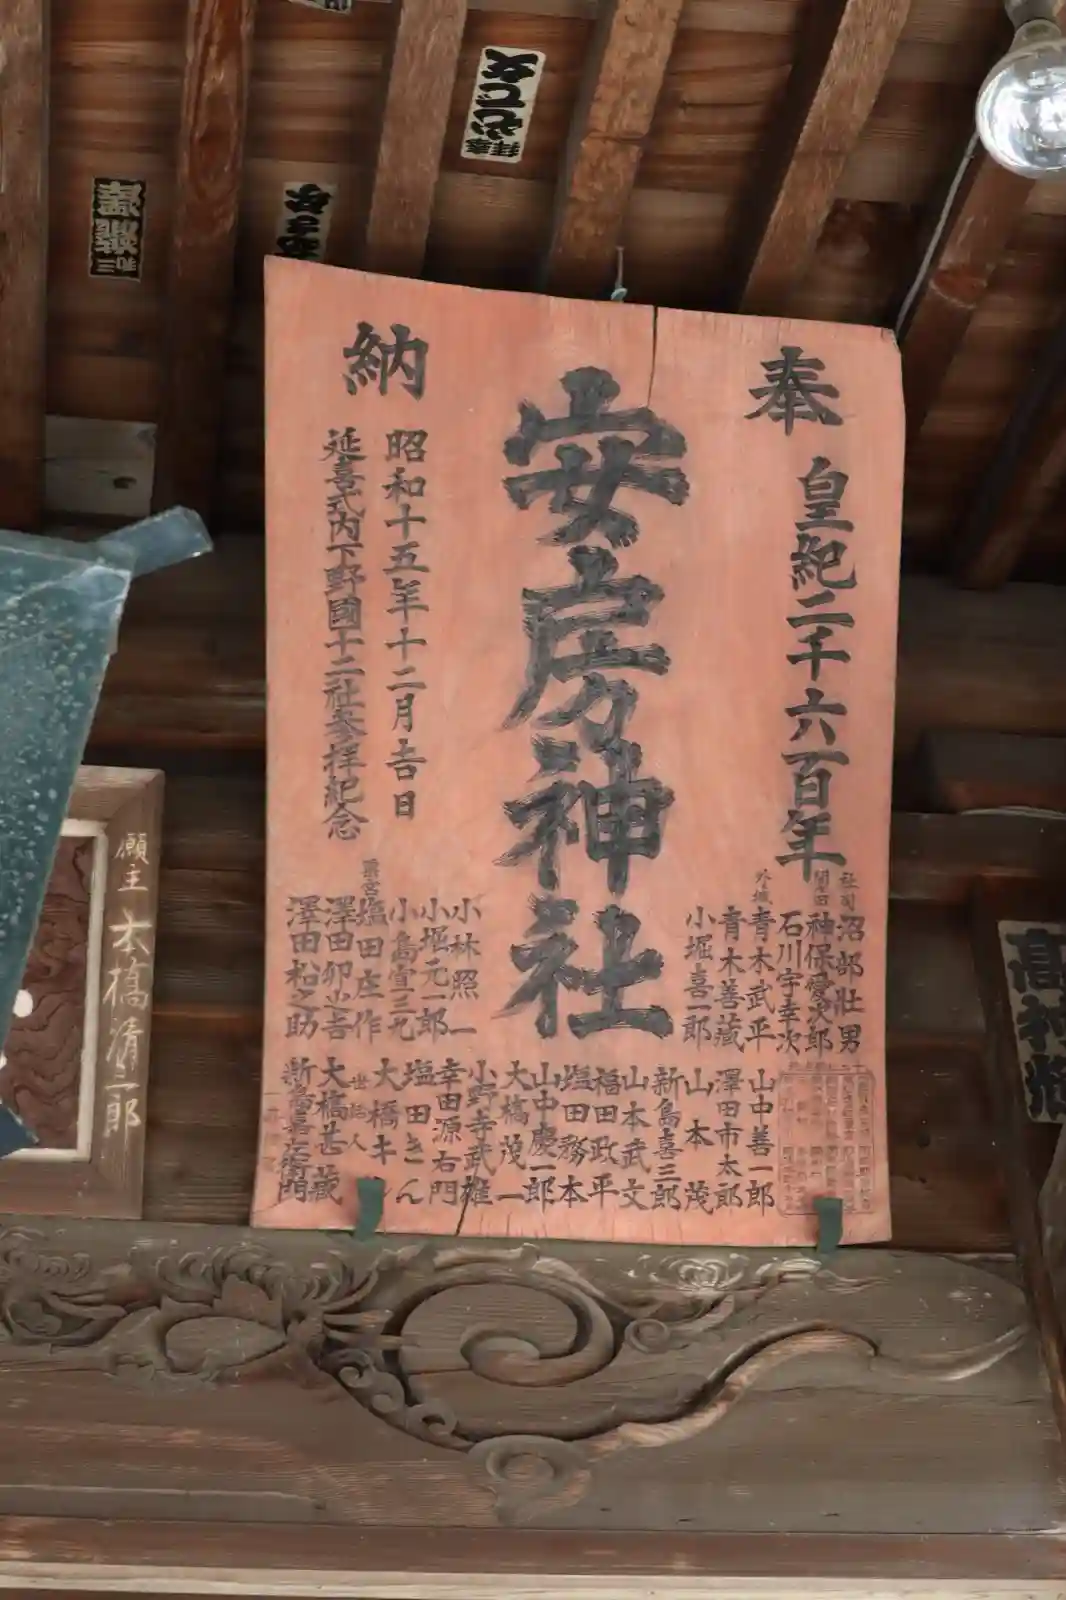 奉
納
皇紀二千六百年
安房神社
昭和十五年十二月吉日
延喜式内下野國十二社参拝紀念
社司
沼部壯男
神保愛次郎
石川宇幸次
青木武平
青木善藏
小堀喜一郎
小林照一
小堀元一郎
小島宣三九
塩田庄作
澤田卯出吉
澤田松之助
山中善一郎
澤田市太郎
山本茂
新島喜三郎
山本武文
福田政平
塩田務本
山中慶一郎
大橋茂一
小野寺武雄
幸田源右門
塩田きん
大橋キ
世話人
大橋甚藏
新島嘉左衛門
願主
本橋清一郎